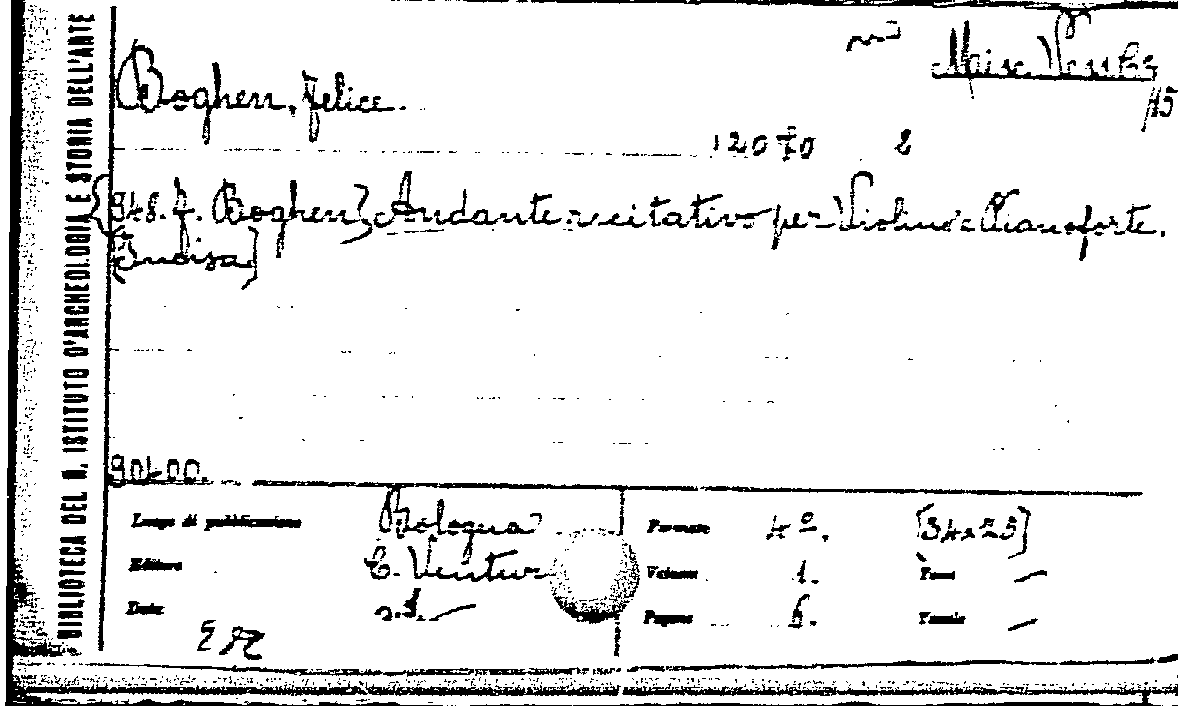 BIBLIOTECA DEL R. ISTITUTO D'ARCHEOLOGIA E STORIA DELL'ARTE
Misc. Venke
15
Boghen, Felice.
12070 2
948. F. Boghen, Andante recitativo per Violino e Pianoforte.
90400.
Luogo di pubblicazione Bologna
Editore C. Ventur
Data s.d.
Formato 4º. [34x25]
Volume 1. Tomi —
Pagine 6. Tavole —